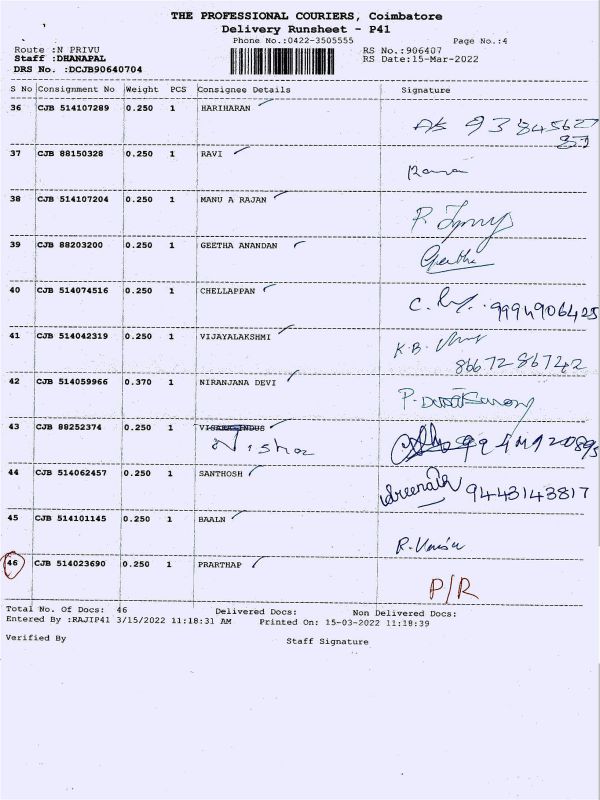 THE PROFESSIONAL COURIERS, Coimbatore
Delivery Runsheet - P41
Phone No.:0422-3505555 Page No.:4
Route :N PRIVU RS No.:906407
Staff :DHANAPAL RS Date:15-Mar-2022
DRS No. :DCJB90640704
S No Consignment No Weight PCS Consignee Details Signature
36 CJB 514107289 0.250 1 HARIHARAN
37 CJB 88150328 0.250 1 RAVI
38 CJB 514107204 0.250 1 MANU A RAJAN
39 CJB 88203200 0.250 1 GEETHA ANANDAN Geetha
40 CJB 514074516 0.250 1 CHELLAPPAN 9994906425
41 CJB 514042319 0.250 1 VIJAYALAKSHMI K.B.
8667286742
42 CJB 514059966 0.370 1 NIRANJANA DEVI
43 CJB 88252374 0.250 1
Nisha
44 CJB 514062457 0.250 1 SANTHOSH Sreenath 9443143817
45 CJB 514101145 0.250 1 BAALN
46 CJB 514023690 0.250 1 PRARTHAP
P/R
Total No. Of Docs: 46 Delivered Docs: Non Delivered Docs:
Entered By :RAJIP41 3/15/2022 11:18:31 AM Printed On: 15-03-2022 11:18:39
Verified By Staff Signature